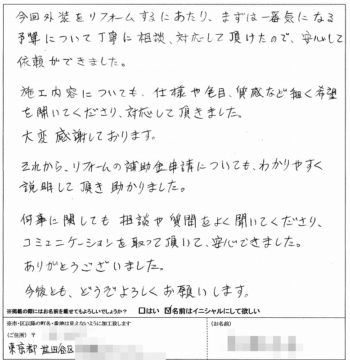 今回外装をリフォームするにあたり、まずは一番気になる
予算について丁寧に相談、対応して頂けたので、安心して
依頼ができました。
施工内容についても、仕様や色目、質感など細く希望
を聞いてくださり、対応して頂きました。
大変感謝しております。
それから、リフォームの補助金申請についても、わかりやすく
説明して頂き助かりました。
何事に関しても相談や質問をよく聞いてくださり、
コミュニケーションを取って頂いて、安心できました。
ありがとうございました。
今後とも、どうぞよろしくお願いします。
※掲載の際にはお名前を載せてもよろしいでしょうか? □はい ☑名前はイニシャルにして欲しい
※市・区以降の町名・番地は見えないように加工致します
(ご住所) 〒 (お名前)
東京都 世田谷区